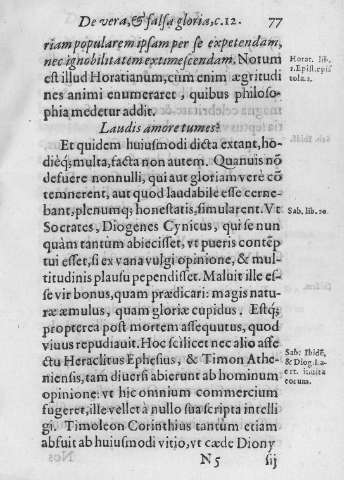 De vera, & falsa gloria, c.12. 77
riam popularem ipsam per se expetendam,
nec ignobilitatem extimescendam. Notum
est illud Horatianum, cum enim ægritudi
nes animi enumeraret, quibus philoso-
phia medetur addit.
Laudis amore tumes?
Et quidem huiusmodi dicta extant, ho-
dieq; multa, facta non autem. Quanuis nō
defuere nonnulli, qui aut gloriam verè cō
temnerent, aut quod laudabile esse cerne-
bant, plenumq; honestatis, simularent. Vt
Socrates, Diogenes Cynicus, qui se nun
quàm tantum abiecisset, vt pueris contēp
tui esset, si ex vana vulgi opinione, & mul
titudinis plausu pependisset. Maluit ille es-
se vir bonus, quam prædicari: magis natu-
ræ æmulus, quam gloriæ cupidus. Estq;
propterea post mortem assequutus, quod
viuus repudiauit. Hoc scilicet nec alio affe
ctu Heraclitus Ephesus, & Timon Athe-
niensis, tam diuersi abierunt ab hominum
opinione: vt hic omnium commercium
fugeret, ille vellet à nullo sua scripta intelli
gi. Timoleon Corinthius tantum etiam
absuit ab huiusmodi vitio, vt cæde Diony
N 5 sij
Horat. lib.
1. Epist. epis
tola. 1.
Sab. lib. 10.
Sab: Ibidē,
& Diog. La-
ert. in vita
eorum.